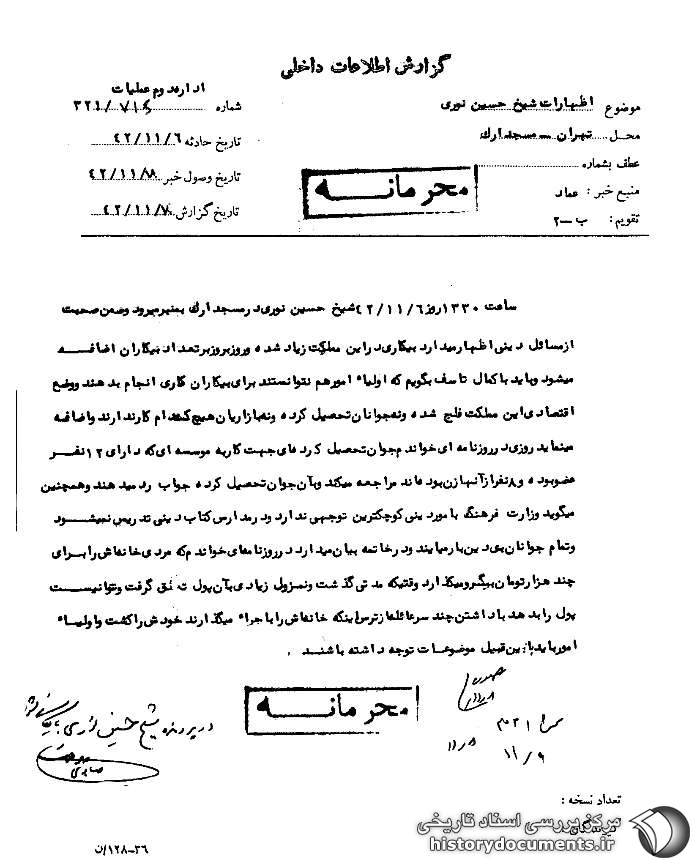 گزارش اطلاعات داخلی
اداره دوم عملیات
موضوع اظهارات شیخ حسین نوری
شماره ۳۲۱/۷۱۶
محل تهران - مسجد ارک
تاریخ حادثه ۴۲/۱۱/۶
عطف بشماره
تاریخ وصول خبر ۴۲/۱۱/۸
منبع خبر : عماد
محرمانه
تاریخ گزارش ۴۲/۱۱/۷
تقویم : ب-۲
ساعت ۱۳۳۰ روز ۴۲/۱۱/۶ شیخ حسین نوری در مسجد ارک بمنبر میرود و ضمن صحبت
از مسائل دینی اظهار میدارد بیکاری در این مملکت زیاد شده و روز بروز بر تعداد بیکاران اضافه
میشود و باید با کمال تاسف بگویم که اولیاء امور هم نتوانستند برای بیکاران کاری انجام بدهند و وضع
اقتصادی این مملکت فلج شده و نه جوانان تحصیل کرده و نه بازاریان هیچکدام کار ندارند و اضافه
مینماید روزی در روزنامه ای خواندم جوان تحصیل کرده ای جهت کار به موسسه ای که دارای ۱۲ نفر
عضو بوده و ۸ نفر از آنها زن بوده اند مراجعه میکند و بآن جوان تحصیل کرده جواب رد میدهند و همچنین
میگوید وزارت فرهنگ با مور دینی کوچکترین توجهی ندارد و در مدارس کتاب دینی تدریس نمیشود
و تمام جوانان بی دین بار میایند و در خاتمه بیان میدارد در روزنامه ای خواندم که مردی خانه اش را برای
چند هزار تومان بگرو میگذارد وقتیکه مدتی گذشت و نزول زیادی بآن پول تعلق گرفت و نتوانست
پول را بدهد با داشتن چند سر عائله از ترس اینکه خانه اش را باجراء میگذارند خودش را کشت و اولیاء
امور باید باین قبیل موضوعات توجه داشته باشند .
محرمانه
در پرونده شیخ حسین نوری
۳۲۱
۱۱/۹
تعداد نسخه :
۳۶-۱۲۸/ن
مرکز بررسی اسناد تاریخی
historydocuments.ir